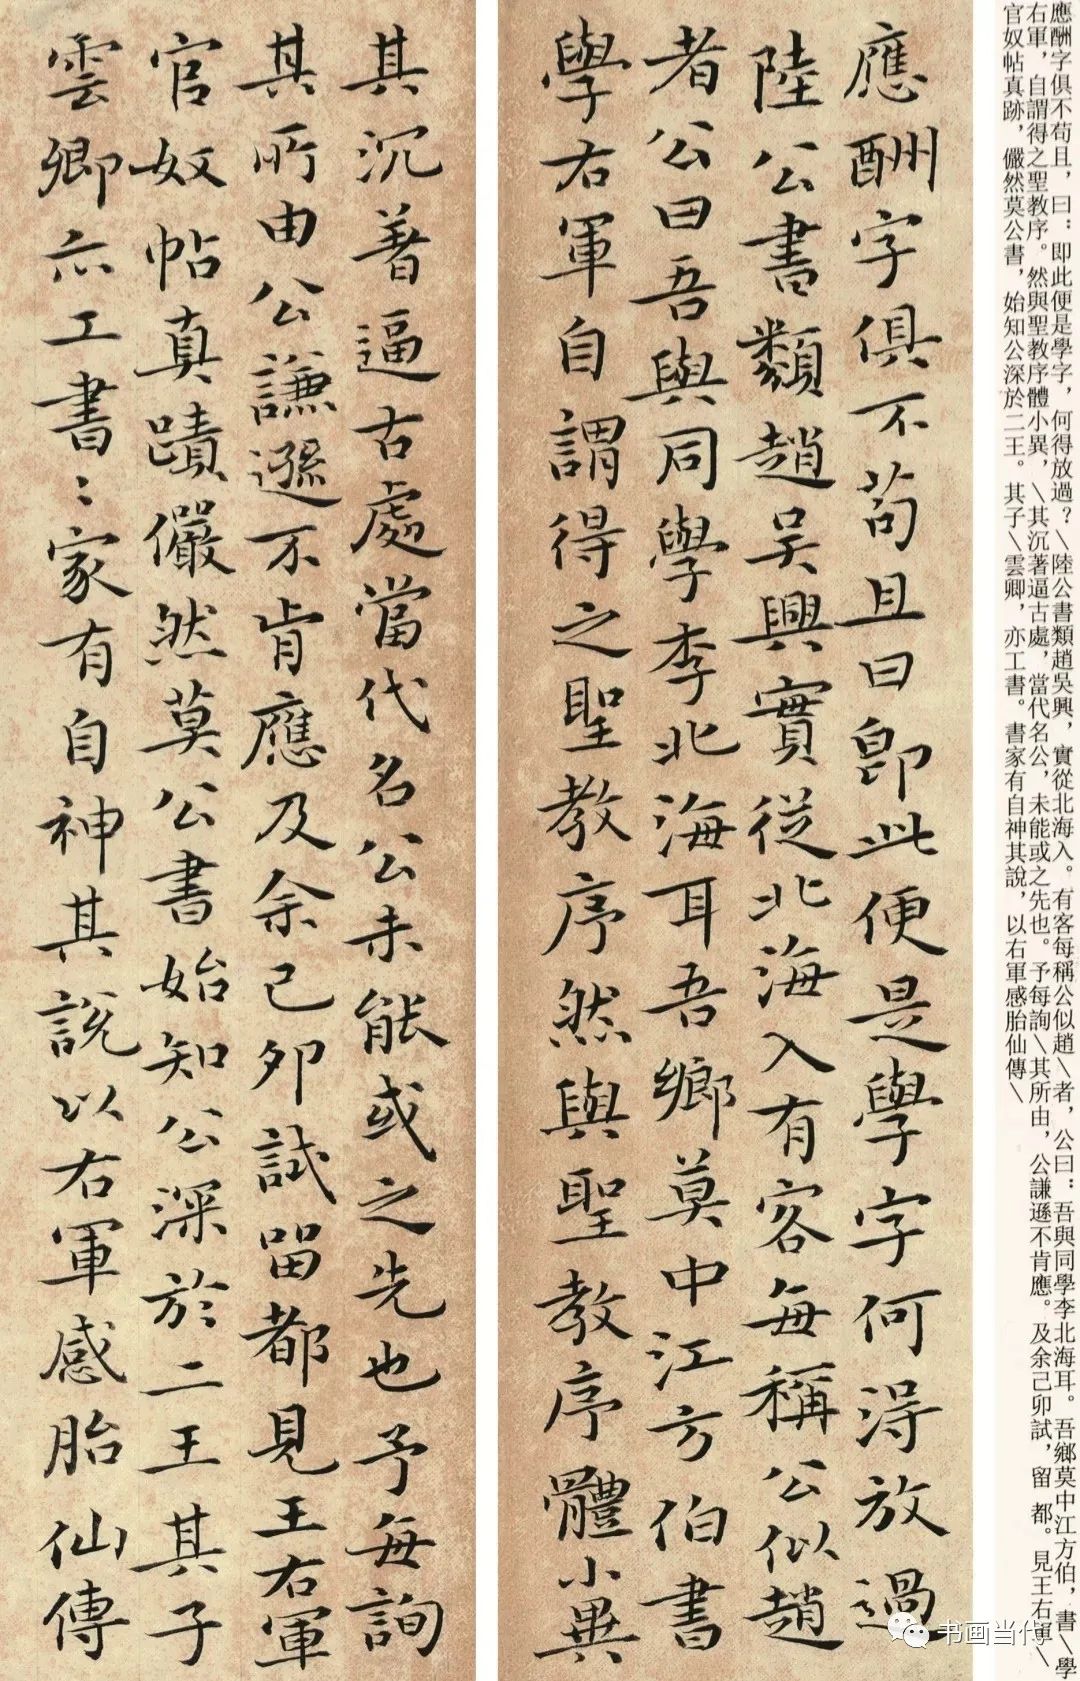 應酬字俱不苟且，曰：即此便是學字，何得放過？\陸公書類趙吳興，實從北海入。有客每稱公似趙\者，公曰：吾與同學李北海耳。吾鄉莫中江方伯，書\學
右軍，自謂得之聖教序。然與聖教序體小異，\其沉著逼古處，當代名公，未能或之先也。予每詢\其所由，公謙遜不肯應。及余己卯試，留 都。見王右軍\
官奴帖真跡，儼然莫公書，始知公深於二王。其子\雲卿，亦工書。書家有自神其說，以右軍感胎仙傳\
應酬字俱不苟且曰即此便是學字何得放過
陸公書類趙吳興實從北海入有客每稱公似趙
者公曰吾與同學李北海耳吾鄉莫中江方伯書
學右軍自謂得之聖教序然與聖教序體小異
其沉著逼古處當代名公未能或之先也予每詢
其所由公謙遜不肯應及余己卯試留都見王右軍
官奴帖真蹟儼然莫公書始知公深於二王其子
雲卿亦工書〻家有自神其說以右軍感胎仙傳
书画当代